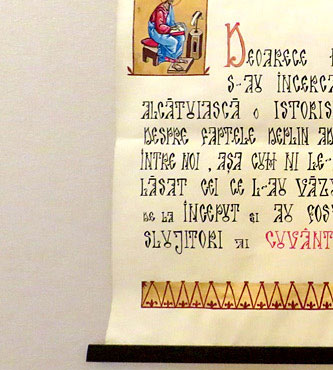 DEOARECE
S-AU ÎNCERC
ALCĂTUIASCĂ O ISTORIS
DESPRE FAPTELE DEPLIN AD
ÎNTRE NOI, AŞA CUM NI LE-
LĂSAT CEI CE L-AU VĂZ
DE LA ÎNCEPUT ŞI AU FOS
SLUJITORI AI CUVÂNT